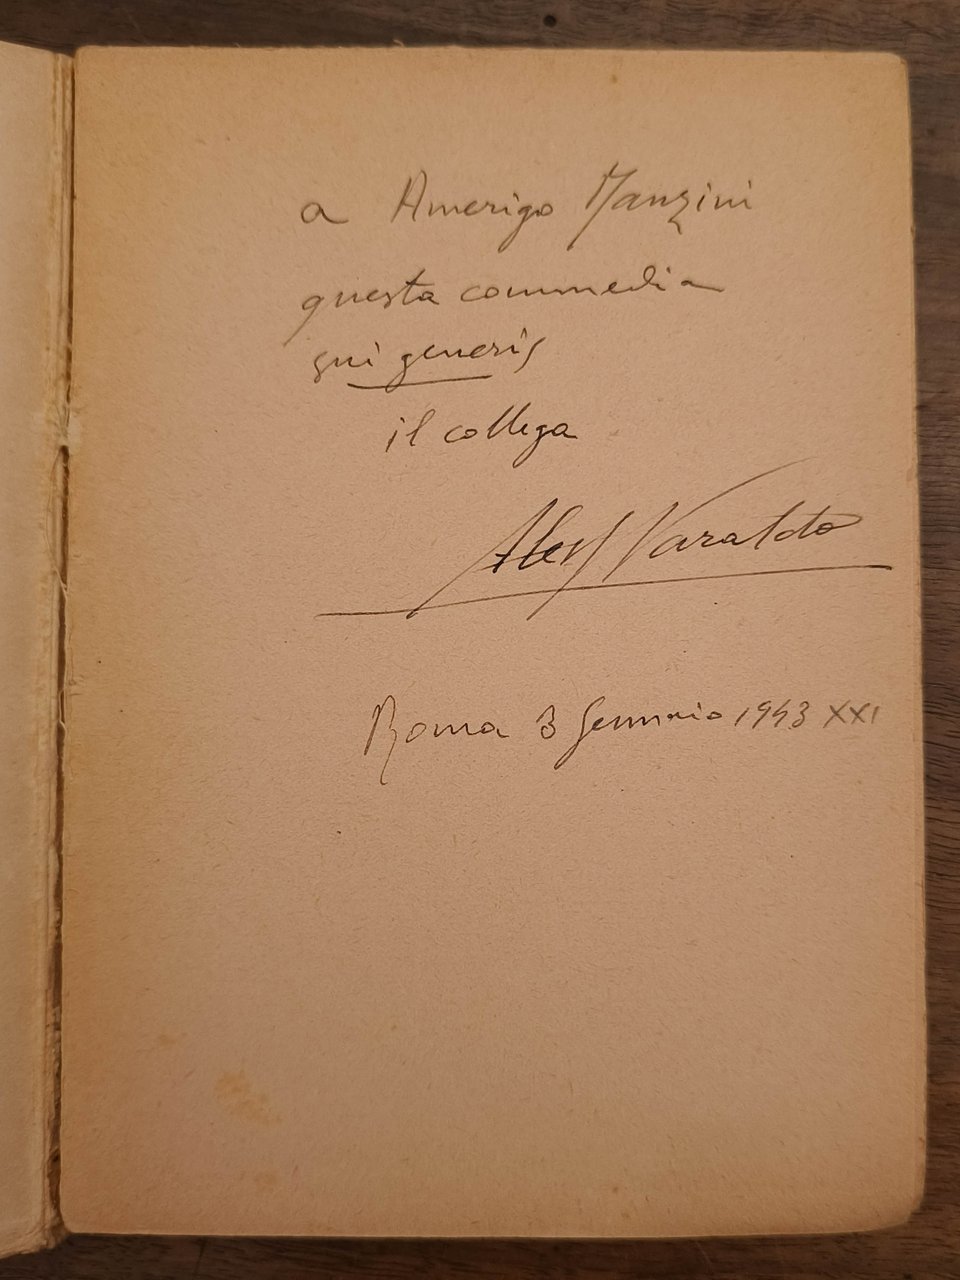 a Amerigo Manzini
questa commedia
sui generis
il collega
Aless Varaldo
Roma 3 Gennaio 1943 XXI